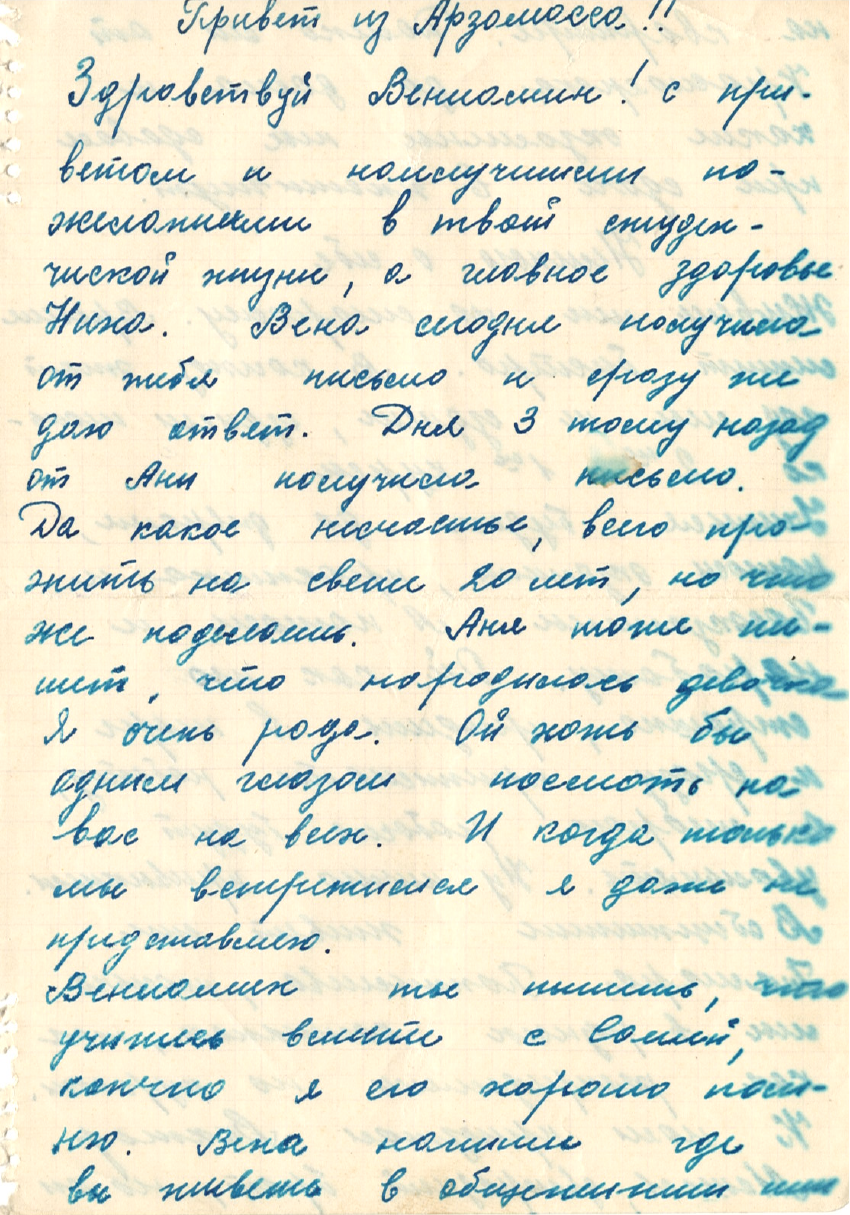 Привет из Арзамасса!!
Здравствуй Вениамин! с при-
ветом и наилучшими по-
желаниями в твоей студен-
ческой жизни, а главное здоровье
Нина. Вена сегодня получила
от тебя письмо и сразу же
даю ответ. Дня 3 тому назад
от Ани получила письмо.
Да какое несчастье, всего про
жить на свете 20 лет, но что
же поделаешь. Аня тоже пи-
шет, что народилась девочка
Я очень рада. Ой хоть бы
одним глазом посмоть на
вас на всех. И когда только
мы встретимся я даже не
представляю.
Вениамин ты пишешь, что
учишься вместе с Сашей,
конечно я его хорошо пом-
ню. Вена напиши где
вы живете в общежитии или